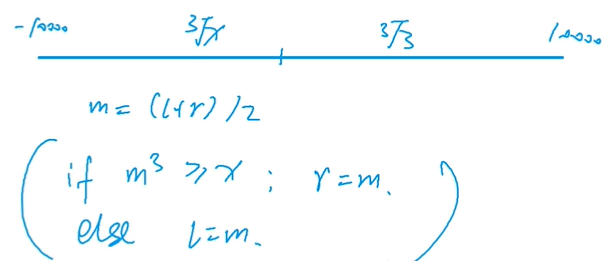 -10000 ³√x ³√3 10000
m = (l+r)/2
if m³ ≥ x ; r=m.
else l=m.